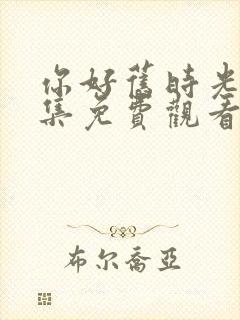 你好舊時光
集免費觀看
布尔喬亞